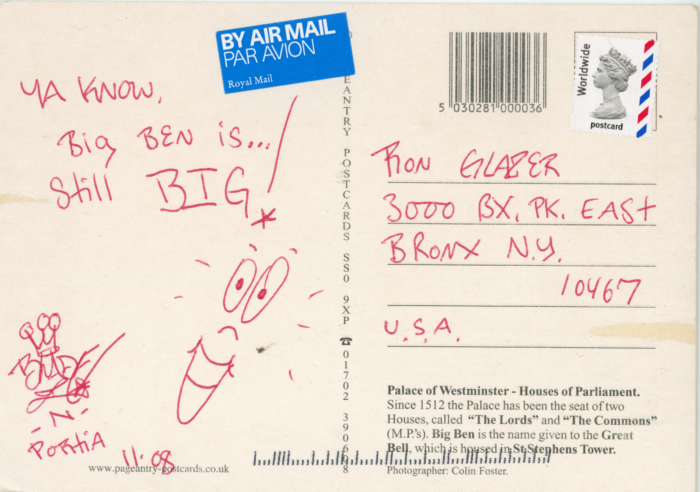 BY AIR MAIL
PAR AVION
Royal Mail
YA KNOW,
Big BEN is...
Still BIG!
-N-
PORTIA
11.08
www.pageantry-postcards.co.uk
PAGEANTRY POSTCARDS SS0 9XP ☎ 01702 390608
5 030281 000036
Worldwide
postcard
RON GLAZER
3000 BX. PK. EAST
BRONX N.Y.
10467
U.S.A.
Palace of Westminster - Houses of Parliament.
Since 1512 the Palace has been the seat of two
Houses, called "The Lords" and "The Commons"
(M.P's). Big Ben is the name given to the Great
Bell, which is housed in St Stephens Tower.
Photographer: Colin Foster.